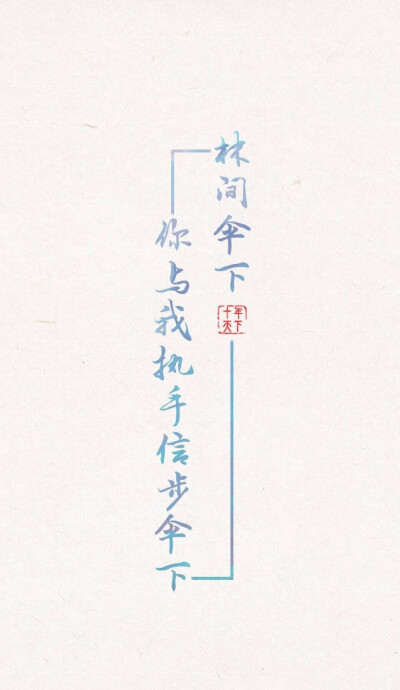 林间伞下
十年天下
你与我执手信步伞下